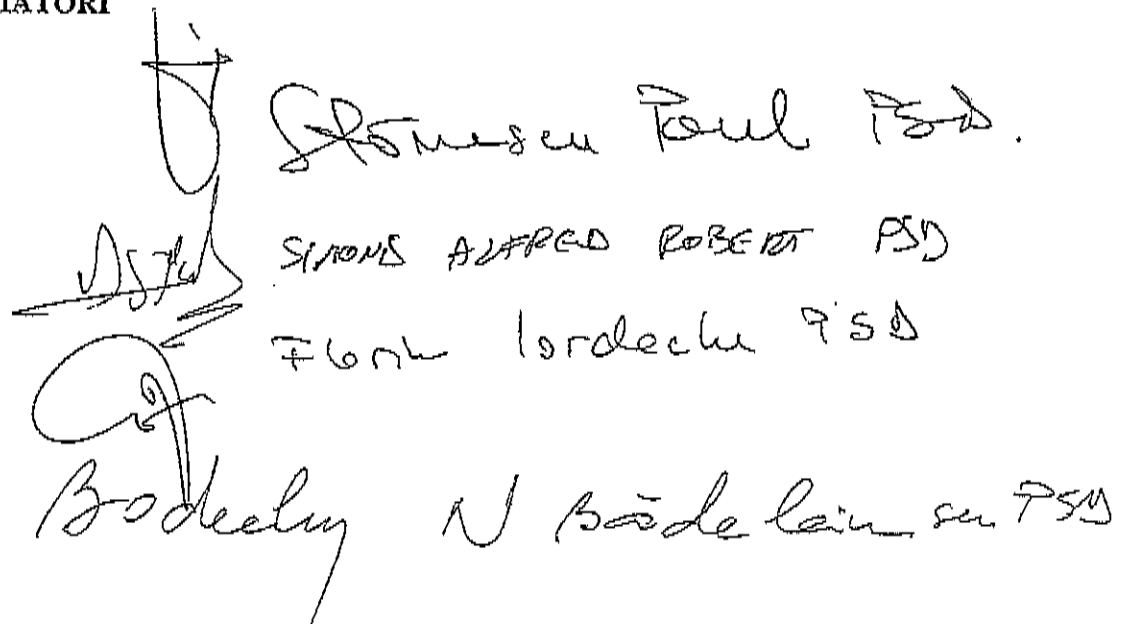 IATORI
Stănescu Paul PSD.
SIMONIS ALFRED ROBERT PSD
Florin Iordache PSD
N Bădălău sen PSD